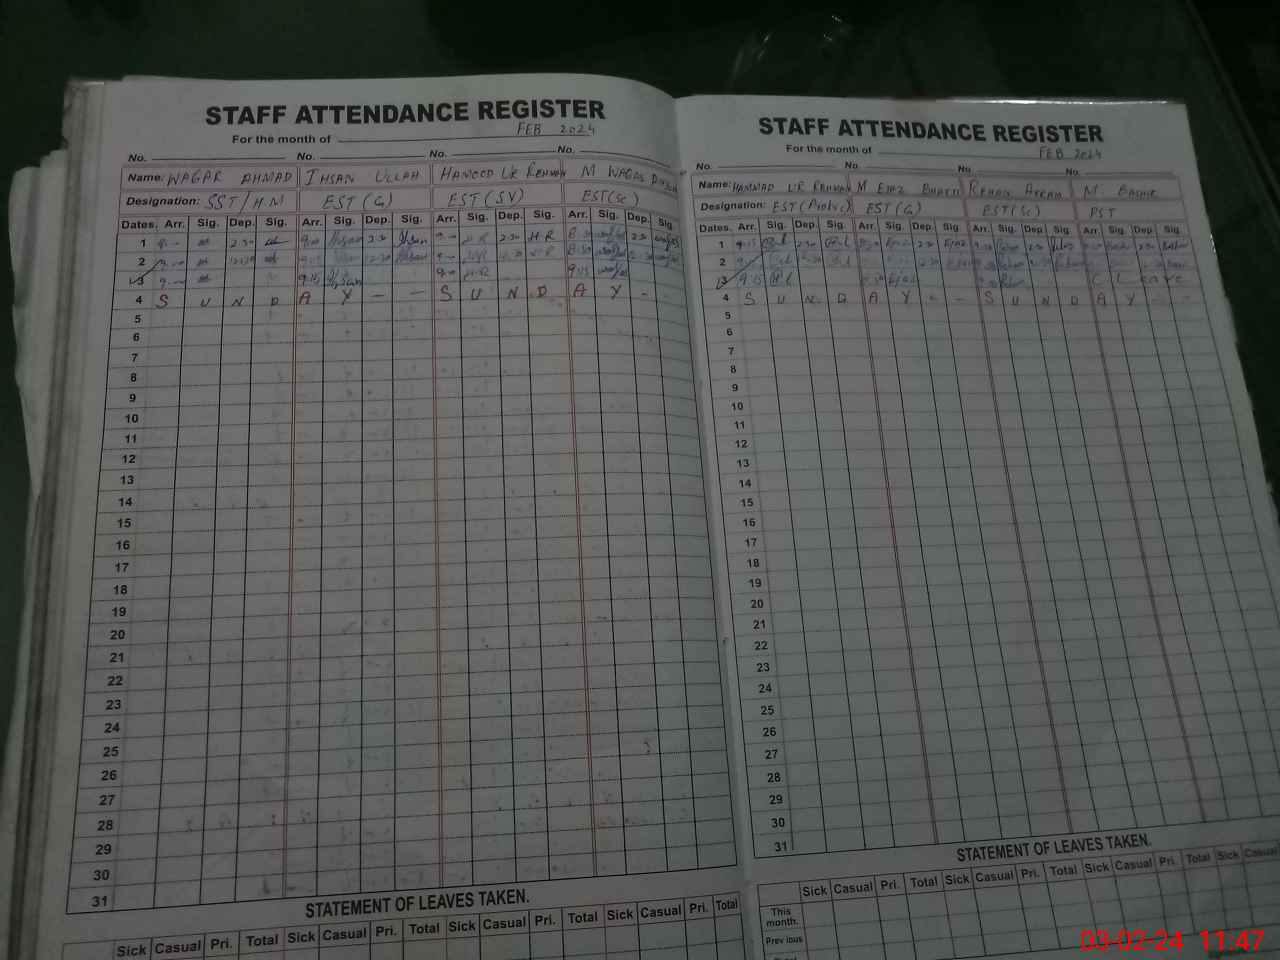 STAFF ATTENDANCE REGISTER
For the month of FEB 2024
No. No. No. No.
Name: WAQAR AHMAD IHSAN ULLAH HAMOOD UR REHMAN M WAQAS
Designation: SST/H.M EST (G) EST (SV) EST (SC)
Dates. Arr. Sig. Dep. Sig. Arr. Sig. Dep. Sig. Arr. Sig. Dep. Sig. Arr. Sig. Dep. Sig.
1 9.00 2.30 9.00 Ihsan 2.30 Ihsan 9.00 H.R 2.30 H.R 8.50 2.30
2 9.00 12.30 12.30 9.00 H.R 12.30 H.R 8.50 12.30
3 9.00 9.15 Ihsan 9.00 H.R 9.15
4 S U N D A Y - - S U N D A Y - -
5
6
7
8
9
10
11
12
13
14
15
16
17
18
19
20
21
22
23
24
25
26
27
28
29
30
31
STATEMENT OF LEAVES TAKEN.
Sick Casual Pri. Total Sick Casual Pri. Total Sick Casual Pri. Total Sick Casual Pri. Total
STAFF ATTENDANCE REGISTER
For the month of FEB 2024
No. No. No. No.
Name: HAMMAD UR REHMAN M EJAZ BHATTI REHAN AKRAM M. BASHIR
Designation: EST (G) EST (SC) PST
Dates. Arr. Sig. Dep. Sig. Arr. Sig. Dep. Sig. Arr. Sig. Dep. Sig. Arr. Sig. Dep Sig.
1 9.15 2.30 2.30 Ejaz 2.30 2.30
2
3 9.15 C L eave
4 S U N D A Y - - S U N D A Y - -
5
6
7
8
9
10
11
12
13
14
15
16
17
18
19
20
21
22
23
24
25
26
27
28
29
30
31
STATEMENT OF LEAVES TAKEN.
Sick Casual Pri. Total Sick Casual Pri. Total Sick Casual Pri. Total Sick Casual
This month.
Previous
03-02-24 11:47